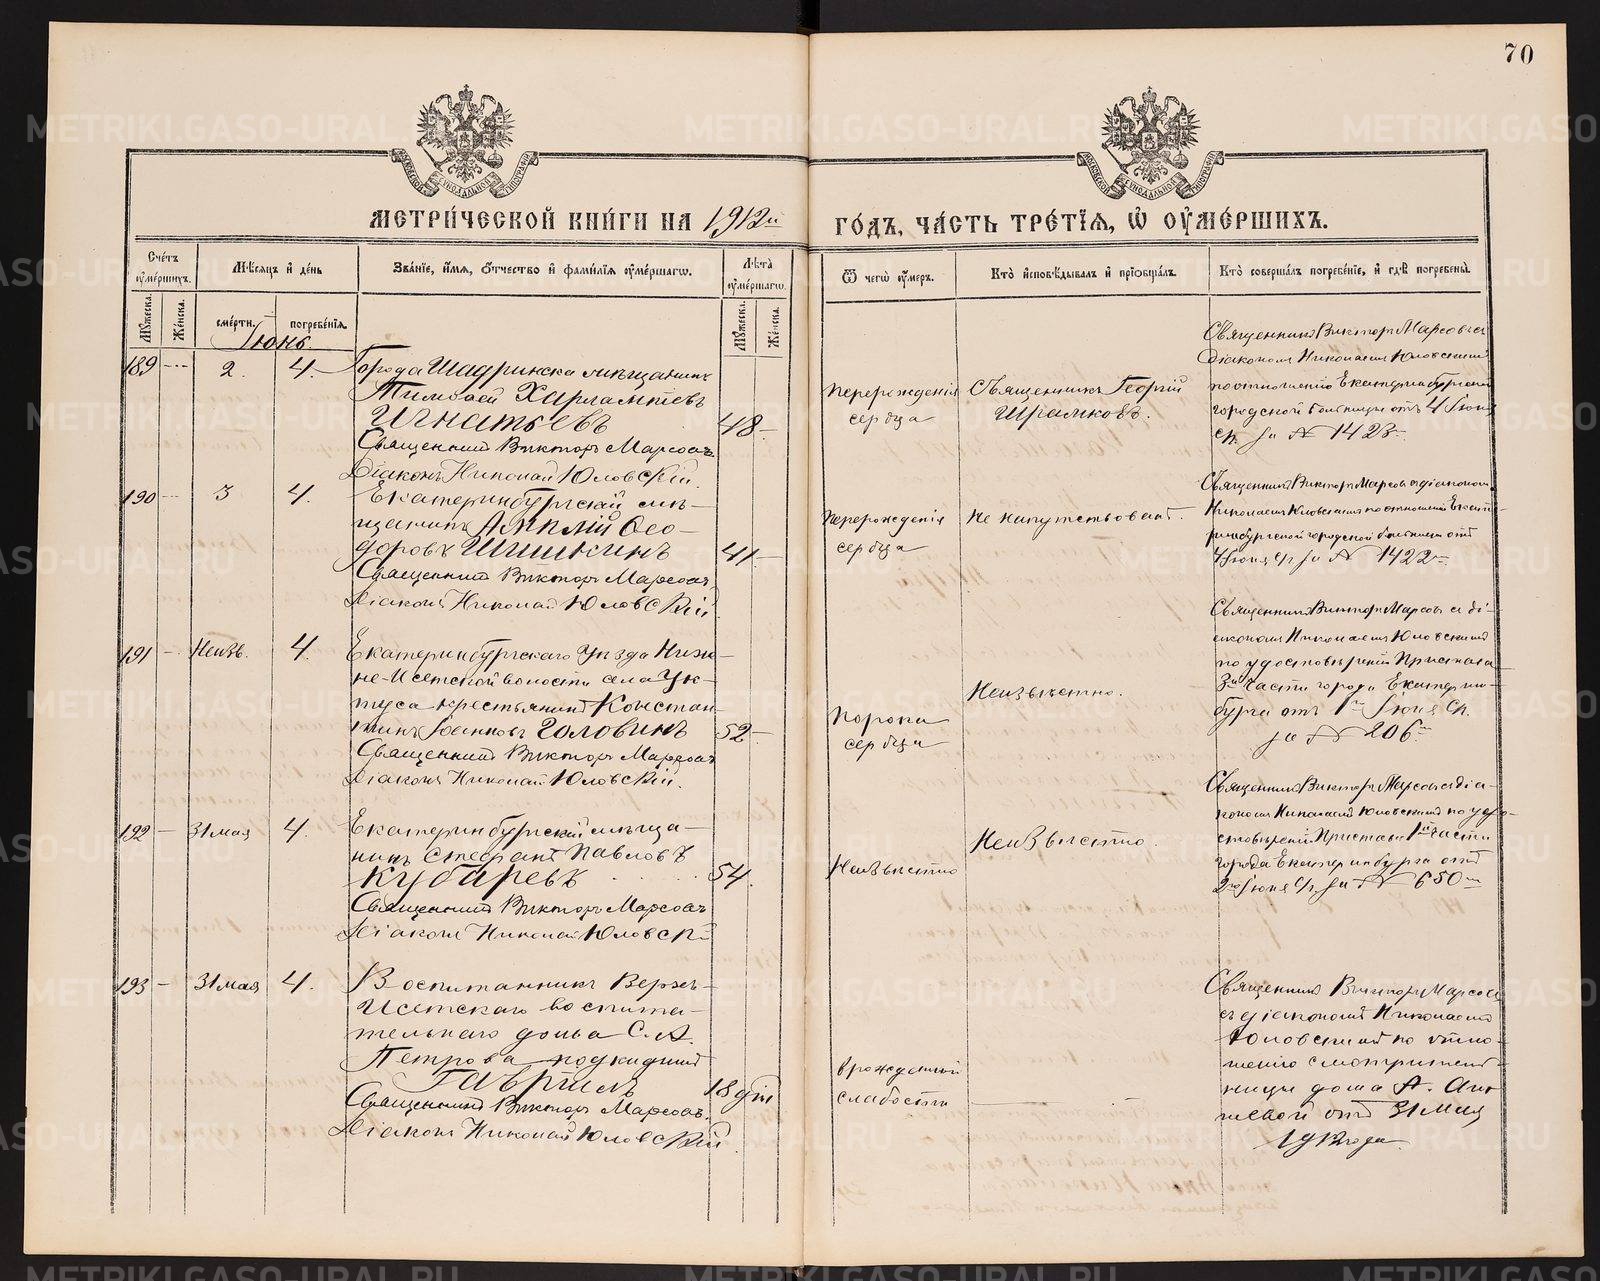 70
МЕТРИ́ЧЕСКОЙ КНИ́ГИ НА 1912й ГО́ДЪ, ЧА́СТЬ ТРЕ́ТІѦ, Ѡ҆ ОУ҆МЕ́РШИХЪ.
Сче́тъ оу҆ме́ршихъ.
Мѣ́сяцъ и҆ де́нь
Зва́нїе, и҆́мя, ѻ҆́тчество и҆ фами́лїя оу҆ме́ршагѡ.
Лѣ́та оу҆ме́ршагѡ.
Ѿ чегѡ̀ оу҆́меръ.
Кто̀ и҆сповѣ́дывалъ и҆ прїѡбща́лъ.
Кто̀ соверша́лъ погребе́нїе, и҆ гдѣ̀ погребены̀.
Мꙋ́жеска.
Же́нска.
сме́рти.
погребе́нїя.
Мꙋ́жеска.
Же́нска.
Іюнь.
189
2.
4.
Города Шадринска мѣщанинъ
Тимофей Харлампіевъ
Игнатьевъ
48
Священникъ Викторъ Марсовъ
Діаконъ Николай Юловскій.
Перерожденія
сердца
Священникъ Георгій
Священникъ Викторъ Марсовъ съ
діакономъ Николаемъ Юловскимъ
по отношенію Екатеринбургской
городской больницы отъ 4 Іюня
с/г. за № 1423
190
3
4.
Екатеринбургскій мѣ-
щанинъ Амплій Ѳео-
доровъ Шишкинъ
41
Священникъ Викторъ Марсовъ
Діаконъ Николай Юловскій
Перерожденія
сердца
Не напутствованъ.
Священникъ Викторъ Марсовъ съ діакономъ
Николаемъ Юловскимъ по отношенію Екате-
ринбургской городской больницы отъ
4 Іюня с/г за № 1422
191
Неизв.
4.
Екатеринбургскаго Уѣзда Ниж-
не-Исетской волости села Ук-
туса крестьянинъ Констан-
тинъ Іоанновъ Головинъ
52
Священникъ Викторъ Марсовъ
Діаконъ Николай Юловскій.
Порока
сердца
Неизвѣстно.
Священникъ Викторъ Марсовъ съ ді-
акономъ Николаемъ Юловскимъ
по удостовѣренію Пристава
3й части города Екатерин-
бурга отъ 1го Іюня с/г.
за № 206
192
31 мая
4.
Екатеринбургскій мѣща-
нинъ Стефанъ Павловъ
Кубаревъ
54.
Священникъ Викторъ Марсовъ
Діаконъ Николай Юловскій
Неизвѣстно
Неизвѣстно.
Священникъ Викторъ Марсовъ съ діа-
кономъ Николаемъ Юловскимъ по удо-
стовѣренію Пристава 1й части
города Екатеринбурга отъ
2го Іюня с/г за № 650
193
31 мая
4.
Воспитанникъ Верхъ-
Исетскаго воспита-
тельнаго дома С. А.
Петрова подкидышъ
Гавріилъ
18 дн
Священникъ Викторъ Марсовъ.
Діаконъ Николай Юловскій.
врожденный
слабости
Священникъ Викторъ Марсовъ
съ діакономъ Николаемъ
Юловскимъ по отно-
шенію смотритель-
ницы дома А.
отъ 31 Мая
1912 года